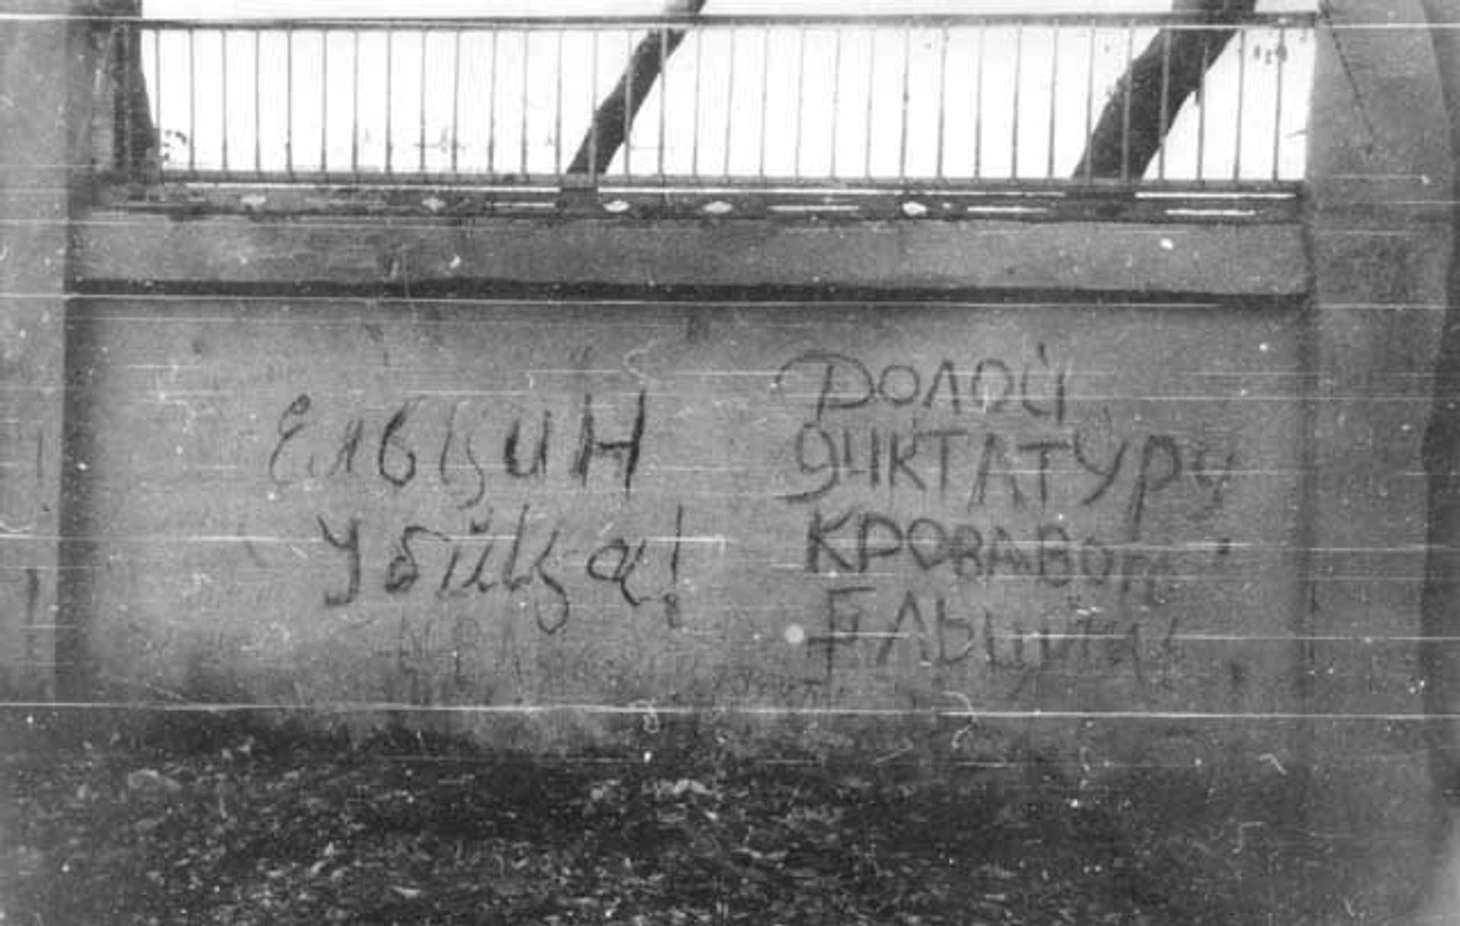 Ельцин
Убийца!
Долой
диктатуру
кровавого
Ельцина